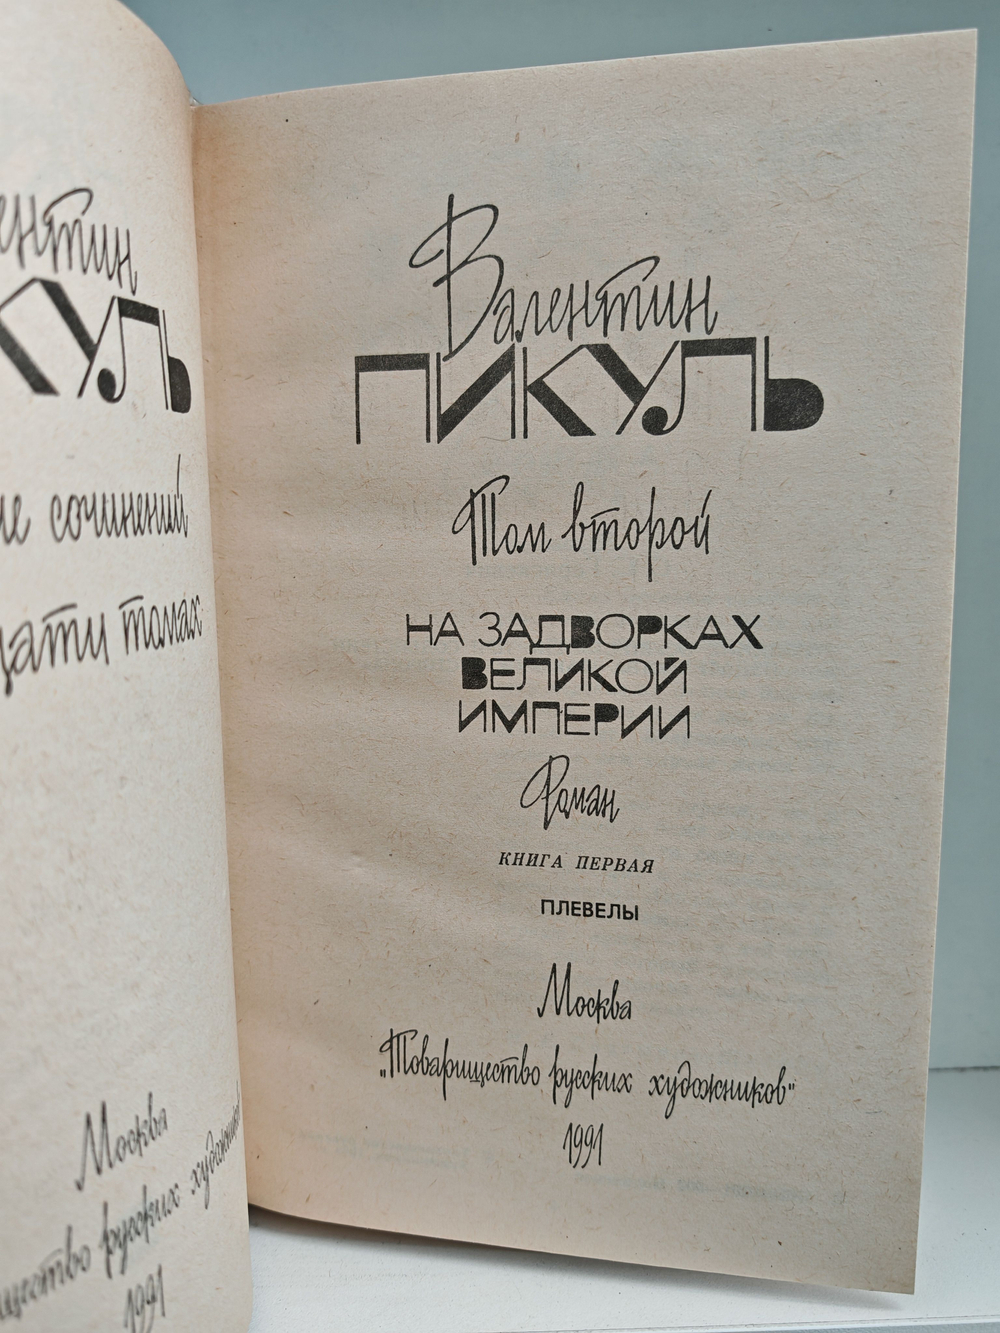 сочинений
томах
Москва
русских
1991
Валентин
ПИКУЛЬ
Том второй
НА ЗАДВОРКАХ
ВЕЛИКОЙ
ИМПЕРИИ
Роман
КНИГА ПЕРВАЯ
ПЛЕВЕЛЫ
Москва
„Товарищество русских художников"
1991